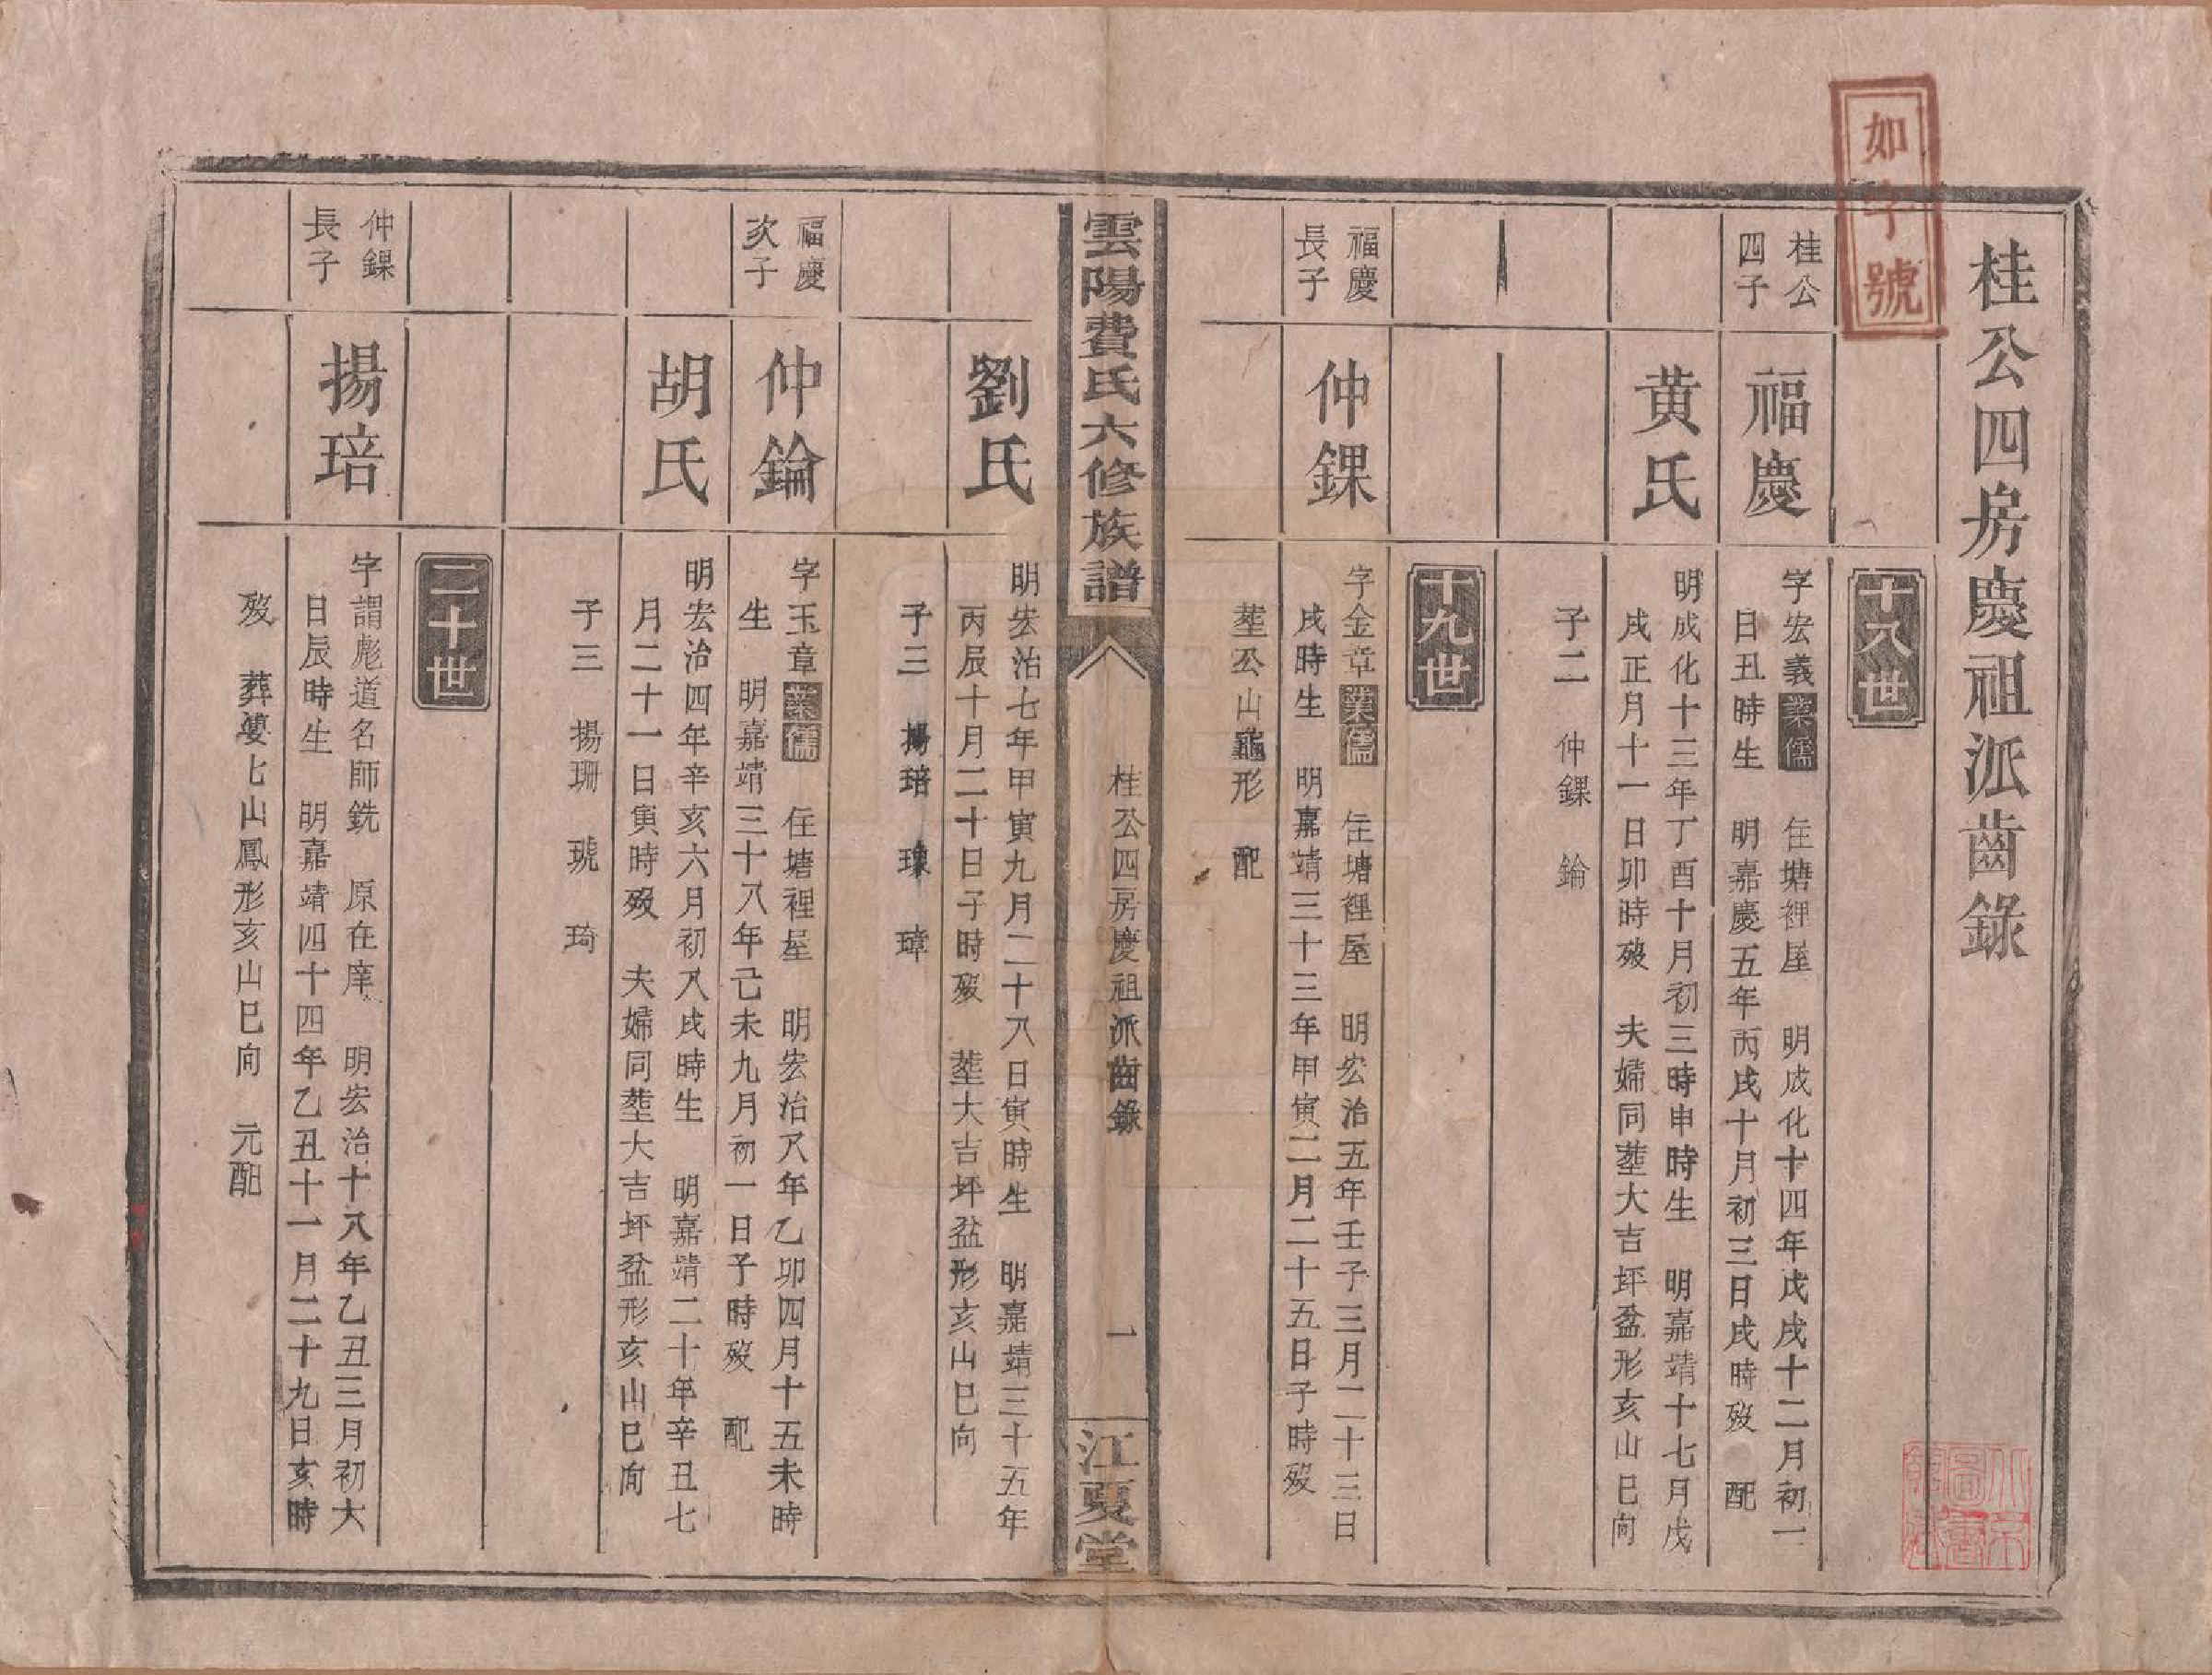 如字號
桂公四房慶祖派齒錄
十八世
桂公
四子
福慶
字宏義業儒 住塘裡屋 明成化十四年戊戌十二月初一
日丑時生 明嘉慶五年丙戌十月初三日戌時歿 配
黄氏
明成化十三年丁酉十月初三時申時生 明嘉靖十七月戊
戌正月十一日卯時歿 夫婦同塟大吉坪盆形亥山巳向
子二 仲錁 錀
十九世
福慶
長子
仲錁
字金章業儒 住塘裡屋 明宏治五年壬子三月二十三日
戌時生 明嘉靖三十三年甲寅二月二十五日子時歿
塟公山龜形 配
雲陽費氏六修族譜
桂公四房慶祖派齒錄
一
江夏堂
劉氏
明宏治七年甲寅九月二十八日寅時生 明嘉靖三十五年
丙辰十月二十日子時歿 塟大吉坪盆形亥山巳向
子三 揚琣 瑔 瑋
福慶
次子
仲錀
字玉章業儒 住塘裡屋 明宏治八年乙卯四月十五未時
生 明嘉靖三十八年己未九月初一日子時歿 配
胡氏
明宏治四年辛亥六月初八戌時生 明嘉靖二十年辛丑七
月二十一日寅時歿 夫婦同塟大吉坪盆形亥山巳向
子三 揚珊 琥 琦
二十世
仲錁
長子
揚琣
字謂彪道名師銑 原在庠 明宏治十八年乙丑三月初大
日辰時生 明嘉靖四十四年乙丑十一月二十九日亥時
歿 葬婁七山鳳形亥山巳向 元配